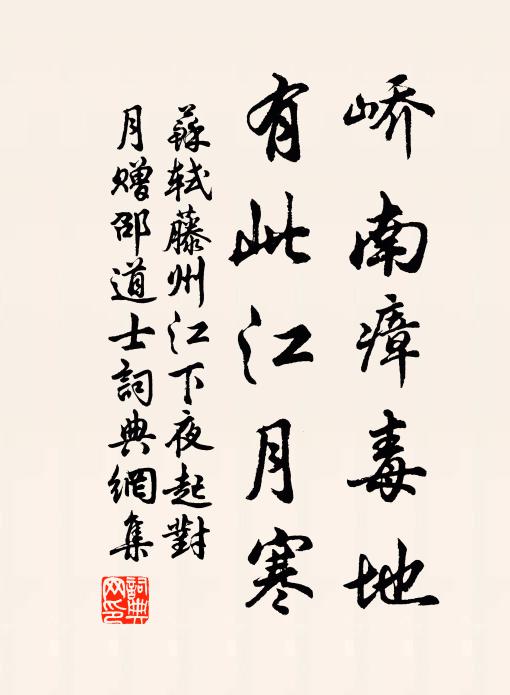 峤南瘴毒地
有此江月寒
蘇軾藤州江下夜起對
月赠邵道士詞典網集
詞典网印